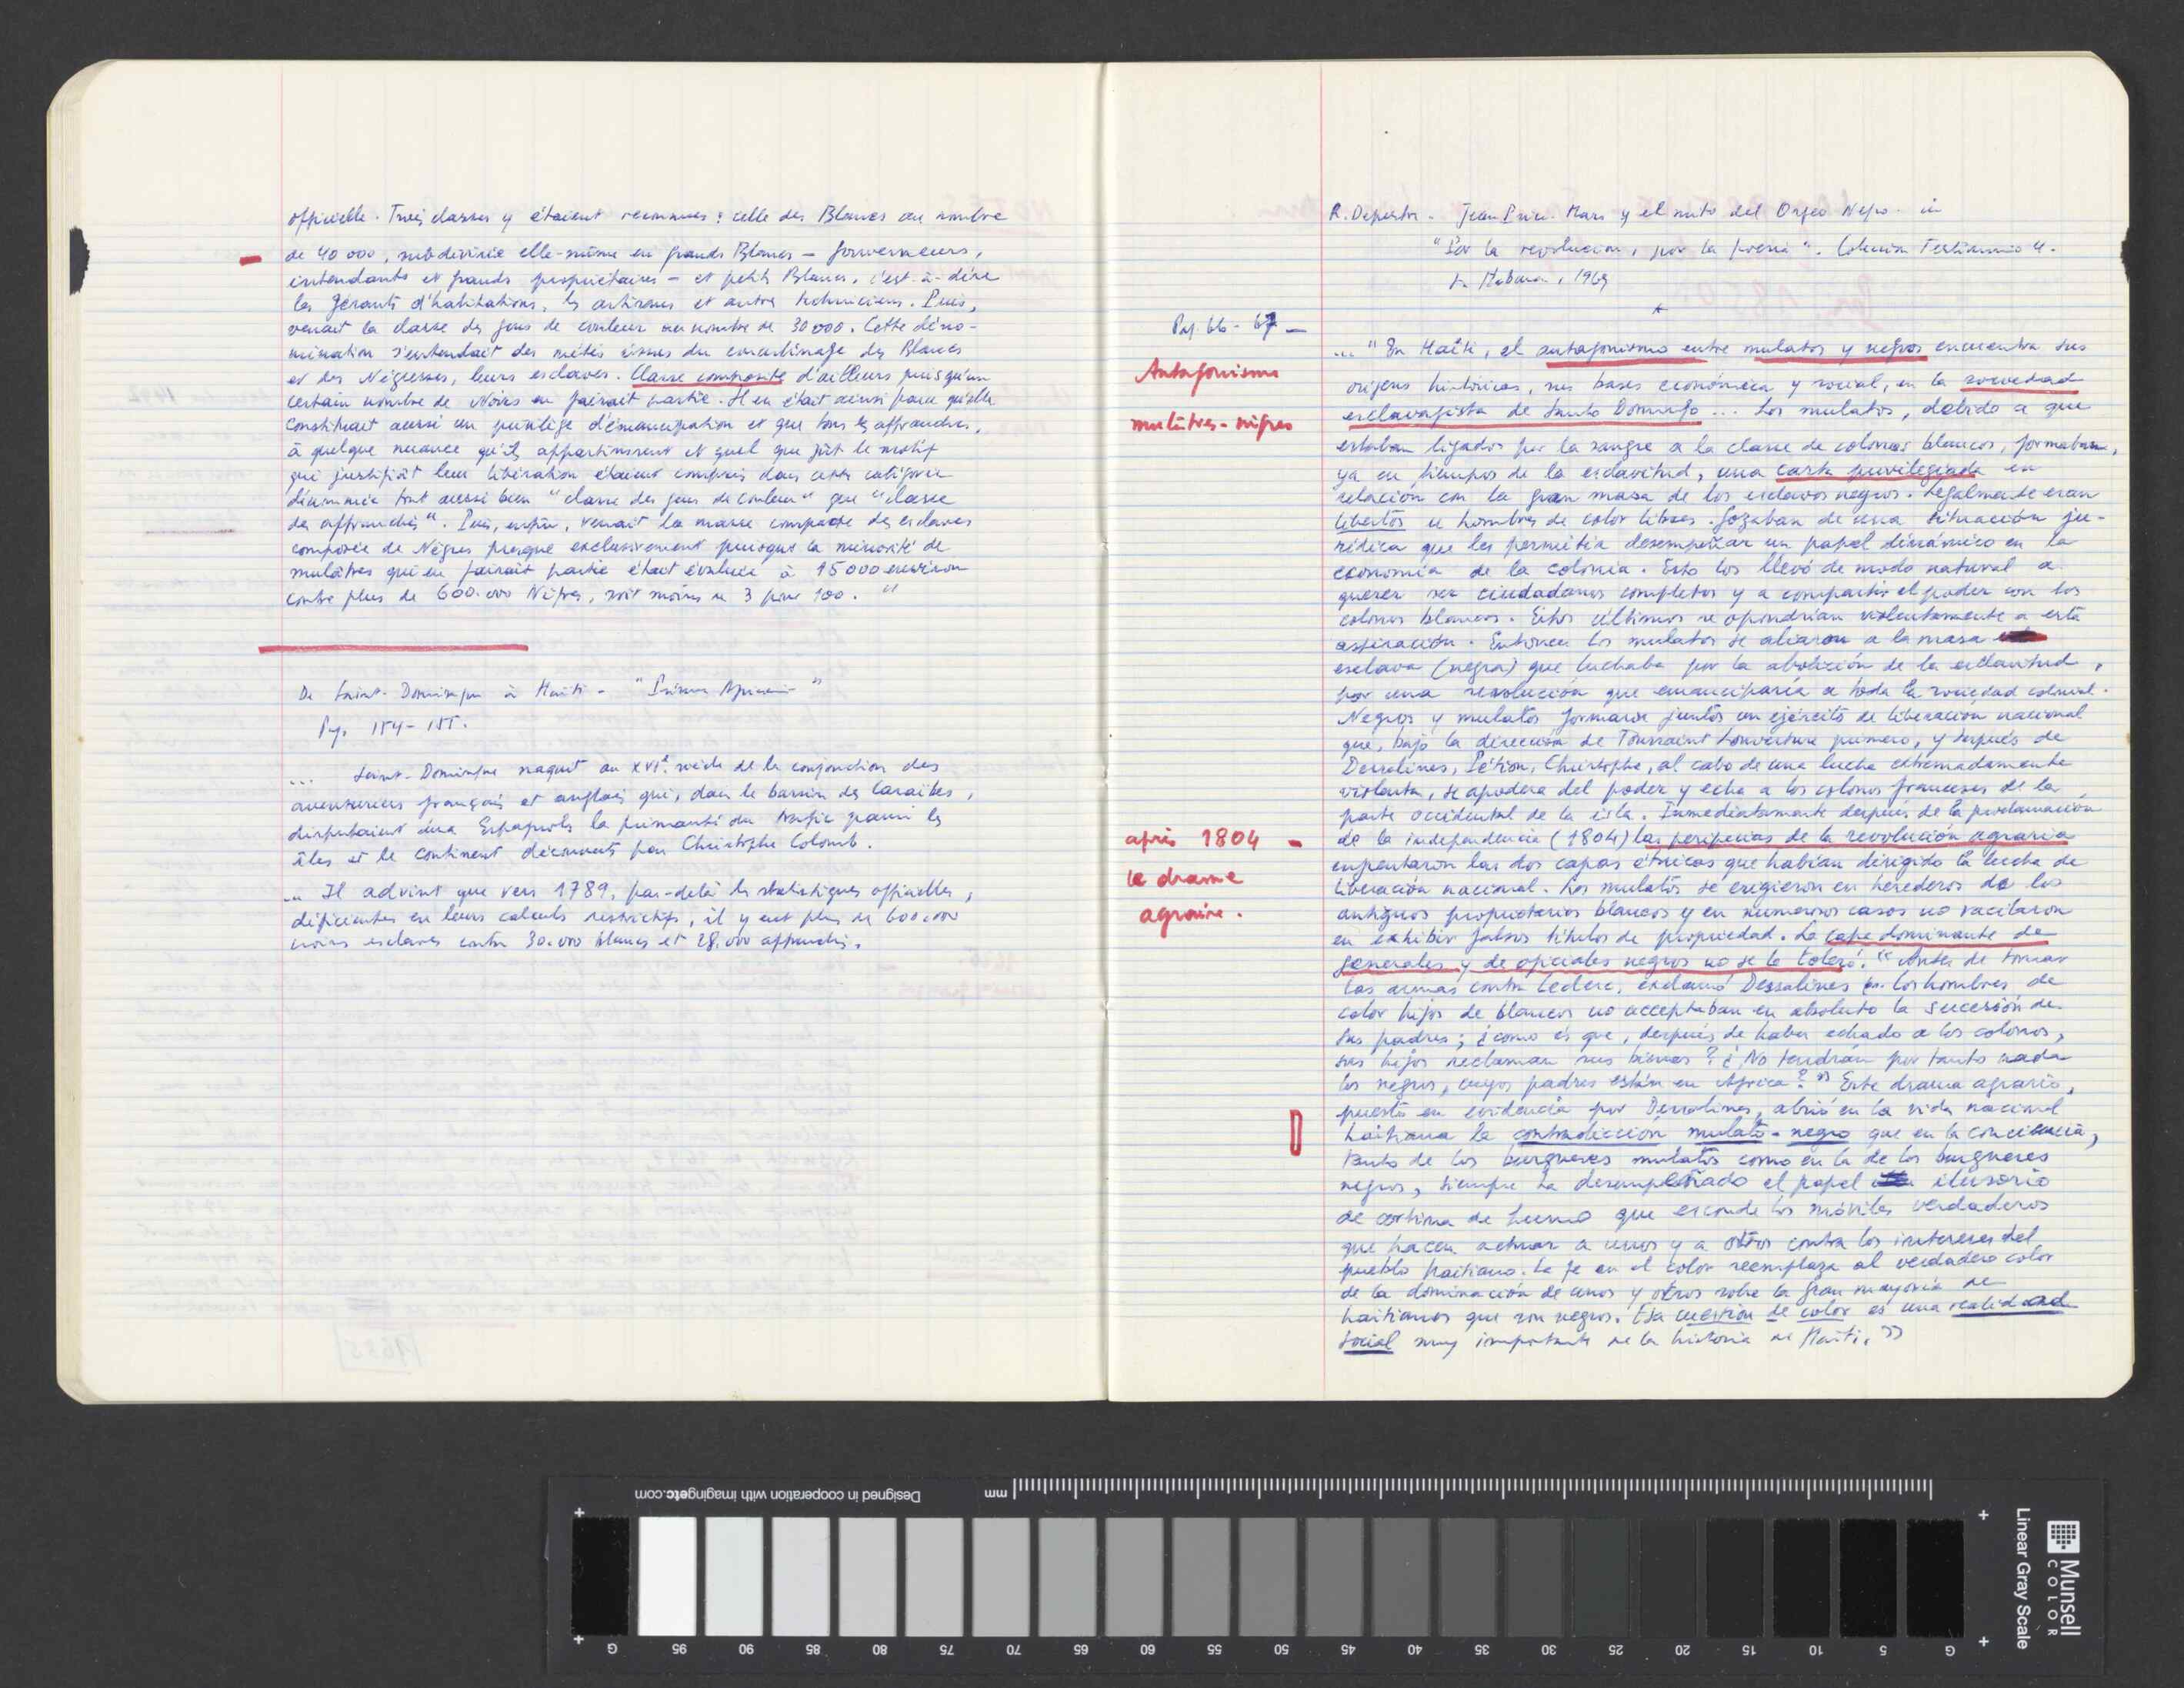 officielle. Trois classes y étaient reconnues : celle des Blancs au nombre
de 40 000, subdivisée elle-même en grands Blancs – gouverneurs,
intendants et grands propriétaires – et petits Blancs, c'est-à-dire
les gérants d'habitations, les artisans et autres techniciens. Puis,
venait la classe des gens de couleur au nombre de 30 000. Cette déno-
mination s'entendait des métis issus du concubinage des Blancs
et des Négresses, leurs esclaves. Classe composite d'ailleurs puisqu'un
certain nombre de Noirs en faisait partie. Il en était ainsi parce qu'elle
constituait aussi un privilège d'émancipation et que tous les affranchis,
à quelque nuance qu'ils appartinssent et quel que fût le motif
qui justifiât leur libération étaient compris dans cette catégorie
dénommée tout aussi bien "classe des gens de couleur" que "classe
des affranchis". Puis, enfin, venait la masse compacte des esclaves
composée de Nègres presque exclusivement puisque la minorité de
mulâtres qui en faisait partie était évaluée à 15 000 environ
contre plus de 600.000 Nègres, soit moins de 3 pour 100. "
De Saint-Domingue à Haïti - "Présence Africaine"
Pg. 154-155.
... Saint-Domingue naquit au XVIe siècle de la conjonction des
aventuriers français et anglais qui, dans le bassin des Caraïbes,
disputaient aux Espagnols la primauté du trafic parmi les
îles et le continent découverts par Christophe Colomb.
... Il advint que vers 1789, par-delà les statistiques officielles,
déficientes en leurs calculs restrictifs, il y eut plus de 600.000
noirs esclaves contre 30.000 blancs et 28.000 affranchis.
R. Depestre - Jean Price-Mars y el mito del Orfeo Negro. in
"Por la revolucion, por la poesia". Coleccion Testimonio 4.
La Habana, 1969
*
Pg. 66-67 –
Antagonisme
mulâtres-nègres
... "En Haïti, el antagonismo entre mulatos y negros encuentra sus
orígenes históricos, sus bases económica y social, en la sociedad
esclavagista de Santo Domingo... Los mulatos, debido a que
estaban ligados por la sangre a la clase de colonos blancos, formaban,
ya en tiempos de la esclavitud, una casta privilegiada en
relación con la gran masa de los esclavos negros. Legalmente eran
libertos u hombres de color libres. Gozaban de una situación ju-
rídica que les permitía desempeñar un papel dinámico en la
economía de la colonia. Esto los llevó de modo natural a
querer ser ciudadanos completos y a compartir el poder con los
colonos blancos. Estos últimos se opondrían violentamente a esta
aspiración. Entonces los mulatos se aliaron a la masa
esclava (negra) que luchaba por la abolición de la esclavitud,
por una revolución que emanciparía a toda la sociedad colonial.
Negros y mulatos formaron juntos un ejército de liberación nacional
que, bajo la dirección de Toussaint Louverture primero, y después de
Dessalines, Pétion, Christophe, al cabo de una lucha extremadamente
violenta, se apodera del poder y echa a los colonos franceses de la
parte occidental de la isla. Inmediatamente después de la proclamación
après 1804 –
le drame
agraire.
de la independencia (1804) las peripecias de la revolución agraria
enfrentaron las dos capas étnicas que habían dirigido la lucha de
liberación nacional. Los mulatos se erigieron en herederos de los
antiguos propietarios blancos y en numerosos casos no vacilaron
en exhibir falsos títulos de propiedad. La capa dominante de
generales y de oficiales negros no se lo toleró. "Antes de tomar
las armas contra Leclerc, exclamó Dessalines los hombres de
color hijos de blancos no acceptaban en absoluto la sucesión de
sus padres; ¿como es que, después de haber echado a los colonos,
sus hijos reclaman sus bienes? ¿No tendrán por tanto nada
los negros, cuyos padres están en Africa?" Este drama agrario,
puesto en evidencia por Dessalines, abrió en la vida nacional
haitiana la contradicción mulato-negro que en la conciencia,
tanto de los burgueses mulatos como en la de los burgueses
negros, siempre ha desempeñado el papel ilusorio
de cortina de humo que esconde los móviles verdaderos
que hacen actuar a unos y a otros contra los intereses del
pueblo haitiano. La fe en el color reemplaza al verdadero color
de la dominación de unos y otros sobre la gran mayoría de
haitianos que son negros. Esa cuestión de color es una realidad
social muy importante de la historia de Haïti. "
Designed in cooperation with imagingetc.com
mm
G 95 90 85 80 75 70 65 60 55 50 45 40 35 30 25 20 15 10 5 G
Munsell
COLOR
Linear Gray Scale